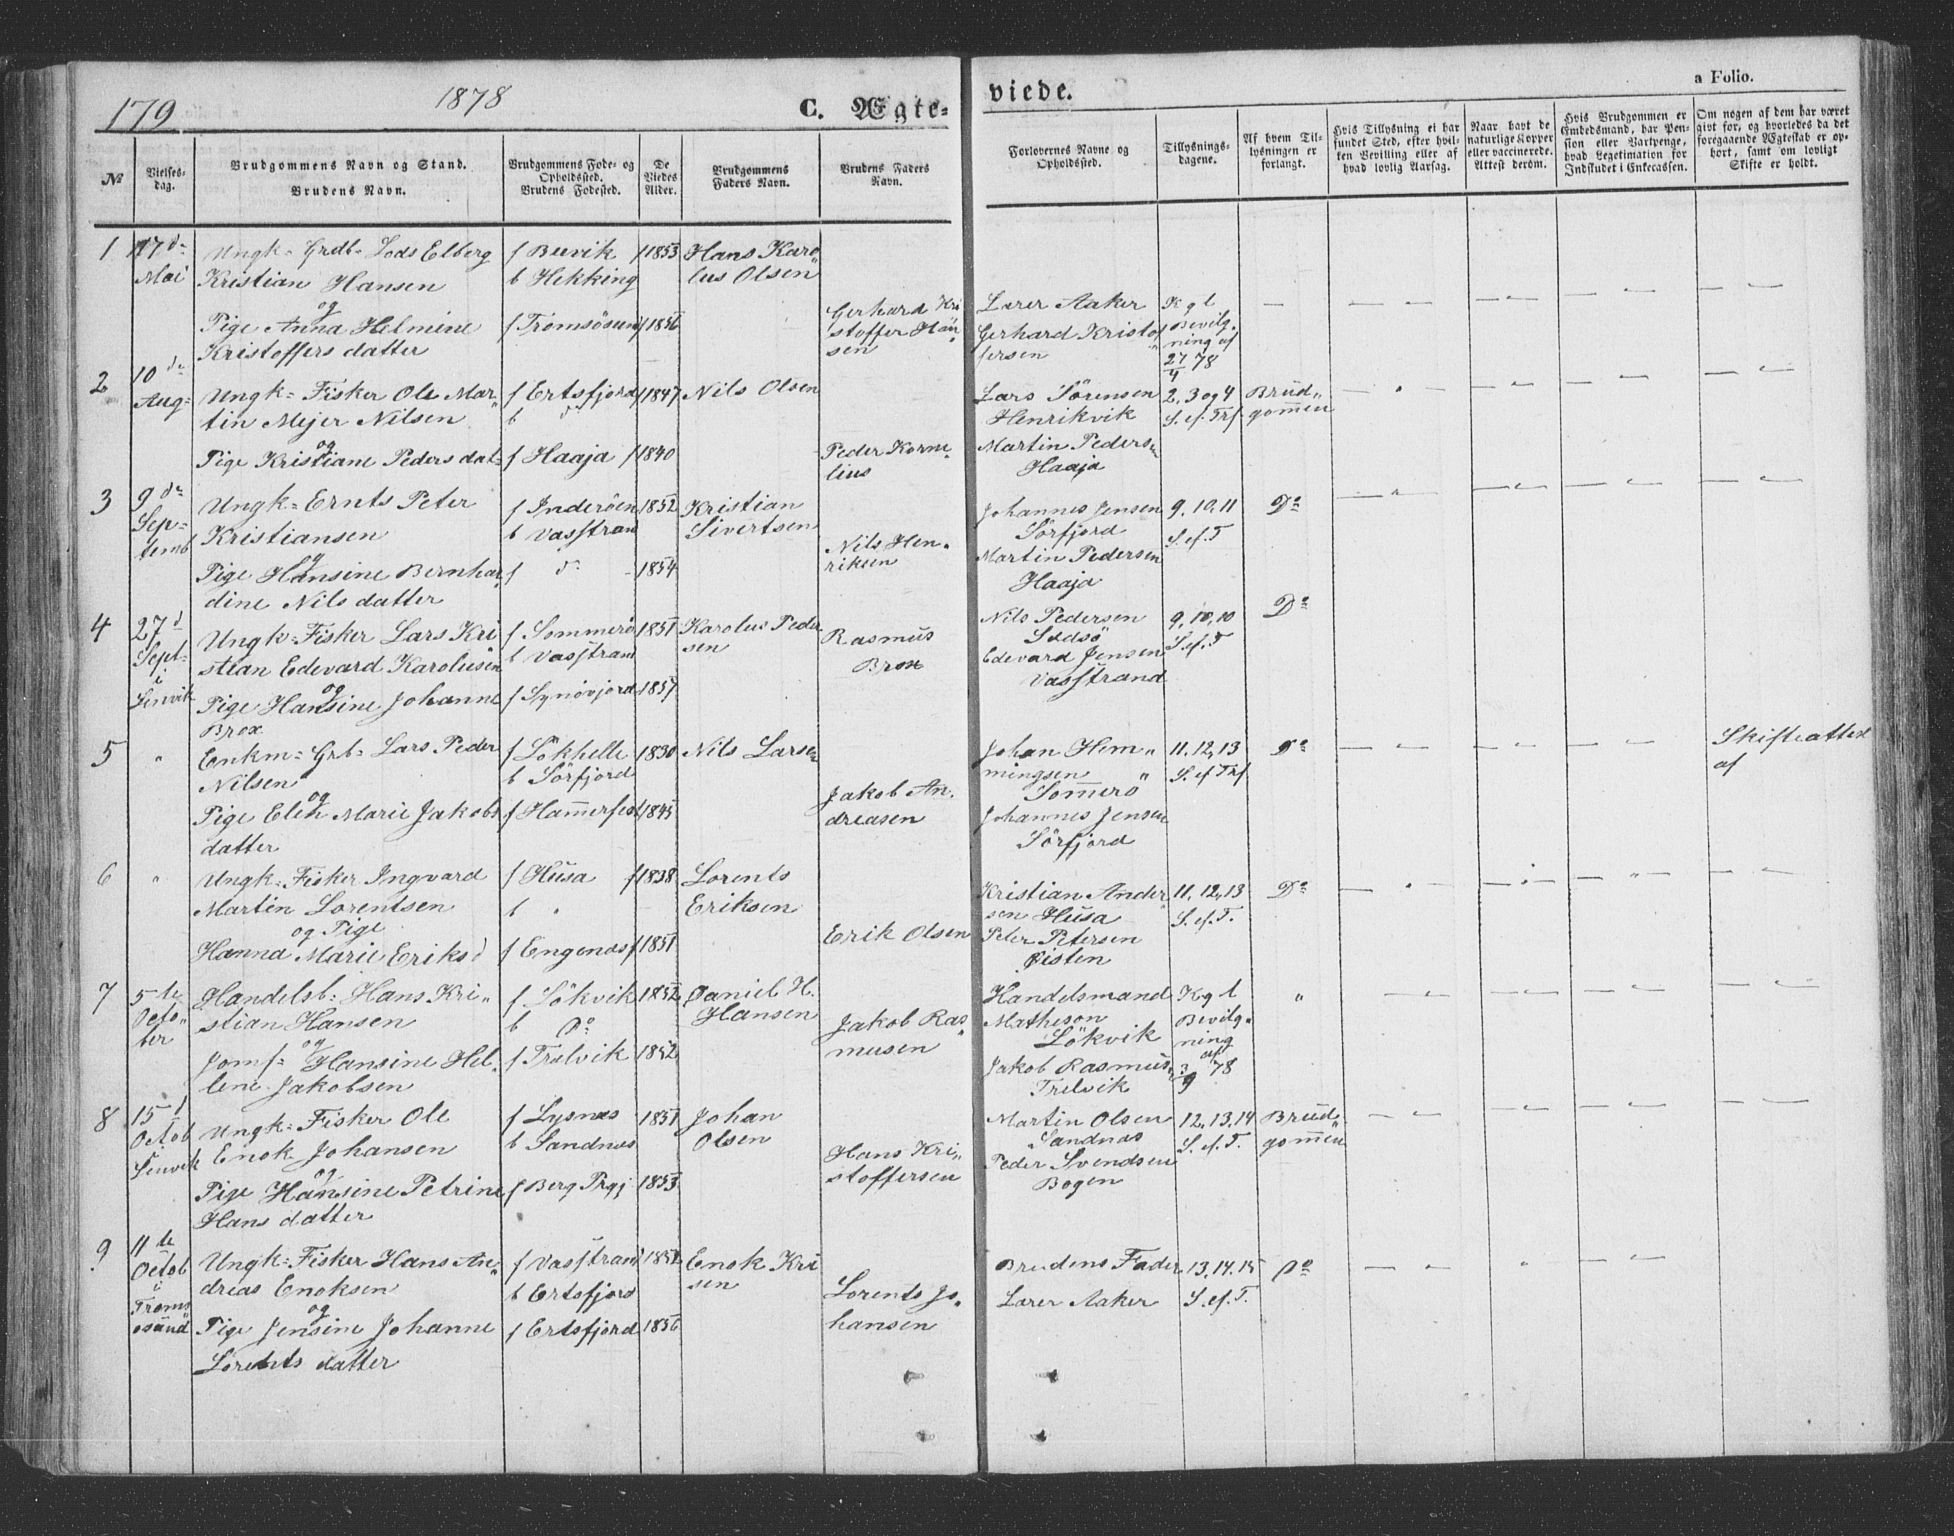 179
1878
C. Ægte-
viede.
a Folio.
No
Vielses-
dag.
Brudgommens Navn og Stand.
Brudens Navn.
Brudgommens Føde- og
Opholdssted.
Brudens Fødested.
De
Viedes
Alder.
Brudgommens
Faders Navn.
Brudens Faders
Navn.
Forlovernes Navne og
Opholdssted.
Tillysnings-
dagene.
Af hvem Til-
lysningen er
forlangt.
Hvis Tillysning ei har
fundet Sted, efter hvil-
ken Bevilling eller af
hvad lovlig Aarsag.
Naar havt de
naturlige Kopper
eller vaccinerede.
Attest derom.
Hvis Brudgommen er
Embedsmand, har Pen-
sion eller Vartpenge,
hvad Legitimation for
Indskudet i Enkecassen.
Om nogen af dem har været
gift før, og hvorledes da det
foregaaende Ægteskab er op-
hørt, samt om lovligt
Skifte er holdt.
1
17de
Mai
Ungk= Grdb= Lods Elberg
Kristian Hansen
og
Pige Anna Helmine
Kristoffers datter
f Buvik
b Hekking
f Tromsösund
f 1853
f 1856
Hans Karo„
lus Olsen
Gerhard Kri
stoffer Han„
sen
Lærer Aaker
Gerhard Kristof„
fersen
Kgl
Bevilg„
ning af
27/4 78
2
10de
Aug=
Ungk= Fisker Ole Mar„
tin Mejer Nilsen
og
Pige Kristiane Peders dat=
f Ertsfjord
b do
f Haaja
f 1847
f 1840
Nils Olsen
Peder Korne„
lius
Lars Sörensen
Henrikvik
Martin Pedersen
Haaja
2, 3 og 4
S. ef. Trf
Brud„
gommen
3
9de
Sep=
temb
Ungk= Ernts Peter
Kristiansen
og
Pige Hansine Bernhar„
dine Nils datter
f Inderöen
b Vasstrand
f do
1852
1854
Kristian
Sivertsen
Nils Hen„
riksen
Johannes Jensen
Sörfjord
Martin Pedersen
Haaja
9, 10, 11
S. ef. T
Do
4
27d
Sept=
i
Lenvik
Ungk= Fisker Lars Kri
stian Edevard Karolusen
og
Pige Hansine Johanne
Brox
f Sommerö
b Vasstrand
f Synövjord
1851
1857
Karolus Peder
sen
Rasmus
Brox
Nils Pedersen
Edevard Jensen
Vasstrand
9, 10, 10
S. ef. T
Do
5
„
Enkm= Grb= Lars Peder
Nilsen
og
Pige Elen Marie Jakobs
datter
f Lökhelle
b Sörfjord
f Hammerfest
1830
1845
Nils Larsen
Jakob An„
dreasen
Johan Hem„
mingsen
Sommerö
Johannes Jensen
Sörfjord
11, 12, 13
S. ef Trf
Do
Skifteattest
af
6
„
Ungk= Fisker Ingvard
Martin Lorentsen
og Pige
Hanna Marie Eriks d
f Husa
b „
f Engenas
f 1838
f 1851
Lorents
Eriksen
Erik Olsen
Kristian Ander„
sen Husa
Peter Petersen
Öisten
11, 12, 13
S. ef. T.
Do
7
5te
Octo„
ber
Handelsb= Hans Kri„
stian Hansen
og
Jomf= Hansine Hel„
lene Jakobsen
f Lökvik
b Do
f Trælvik
1852
1852
Daniel H.
Hansen
Jakob Ras„
musen
Handelsmand
Matheson
Lökvik
Jakob Rasmus
Trælvik
Kgl
Bevilg„
ning
af
3/9 78
„
8
15d
Octob
Lenvik
Ungk= Fisker Ole
Enok Johansen
og
Pige Hansine Petrine
Hans datter
f Lysnæs
b Sandnæs
f Berg Prgj
1851
1853
Johan
Olsen
Hans Kri„
stoffersen
Martin Olsen
Sandnæs
Peder Svendsen
Bogen
12, 13, 14
S. ef. T.
Brud„
gommen
9
11te
Octob
i
Troms
ösund
Ungk= Fisker Hans An„
dreas Enoksen
og
Pige Jensine Johanne
Lorents datter
f Vasstrand
b Ertsfjord
f Ertsfjord
1852
1856
Enok Kri
sen
Lorents Jo„
hansen
Brudens Fader
Lærer Aaker
13, 14, 15
S. ef. T.
Do